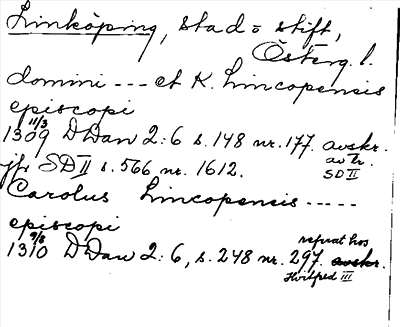 Linköping, stad o stift,
Österg. l.
domini --- et K. Lincopensis
episcopi
1309 11/3 D Dan 2:6 s. 148 nr. 177. avskr.
av tr.
jfr SD II s. 566 nr. 1612. SD II
Carolus Lincopensis -----
episcopi
1310 9/8 D Dan 2:6, s. 248 nr. 297. referat hos
avskr.
Hvitfeld III